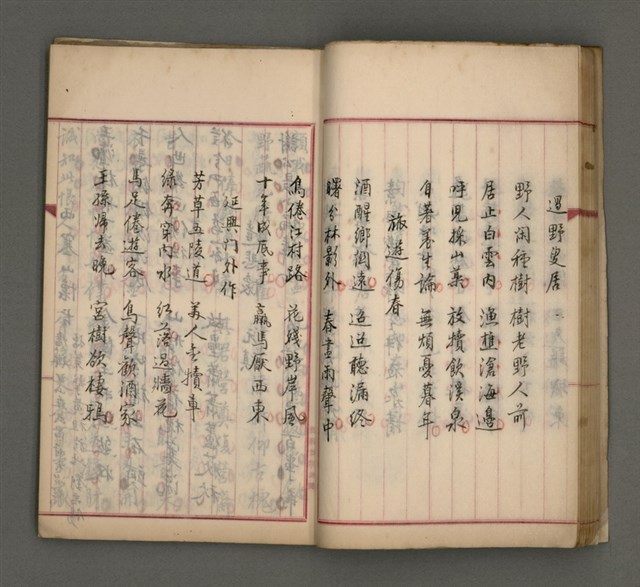 過野叟居
野人閑種樹 樹老野人前
居止白雲內 漁樵滄海邊
呼兒採山藥 放犢飲溪泉
自著養生論 無煩憂暮年
旅遊傷春
酒醒鄉關遠 迢迢聽漏終
曙分林影外 春盡雨聲中
鳥倦江村路 花殘野岸風
十年成底事 羸馬厭西東
延興門外作
芳草五陵道 美人金犢車
綠奔穿內水 紅落過牆花
馬足倦遊客 鳥聲歡酒家
王孫歸去晚 宮樹欲棲鴉